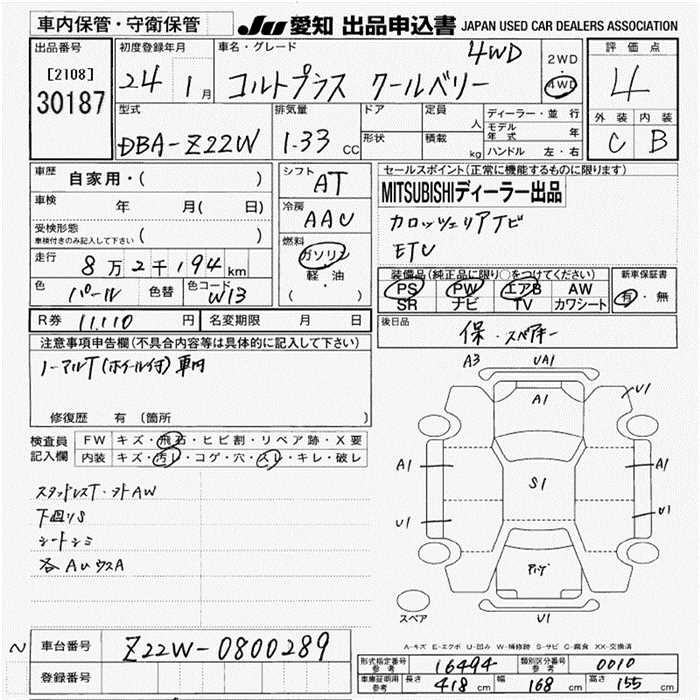 車内保管・守衛保管
JU 愛知 出品申込書 JAPAN USED CAR DEALERS ASSOCIATION
出品番号
[2108]
30187
初度登録年月
24 1月
車名・グレード
4WD
コルトプラス クールベリー
2WD
4WD
評価点
4
外装 内装
C B
型式
DBA-Z22W
排気量
1.33 CC
ドア
形状
定員 人
積載 kg
ディーラー・並行
モデル年式 年
ハンドル 左・右
車歴 自家用・( )
車検 年 月( 日)
受検形態
車検付きのみ記入して下さい ( )
走行 8万2千194km
色 パール 色替 色コード W13
シフト AT
冷房 AAC
燃料
ガソリン
軽・油
( )
セールスポイント(正常に機能するものに限ります)
MITSUBISHIディーラー出品
カロッツェリアTビ
ETC
装備品(純正品に限り○をつけてください)
PS PW エアB AW
SR ナビ TV カワシート
新車保証書
有・無
R券 11,110 円 名変期限 月 日
後日品
保・スペアキー
注意事項申告欄(不具合内容等は具体的に記入して下さい)
ノーマルT(ホイール付)車内
修復歴 有(箇所 )
検査員記入欄
FW キズ・飛石・ヒビ割・リペア跡・X要
内装 キズ・汚レ・コゲ・穴・スレ・キレ・破レ
スタッドレスT・ソトAW
下廻りS
シートシミ
各AUウスA
A3 UA1
A1
U1
A1
S1
A1
U1
U1
U1
スペア
A-キズ E-エクボ U-凹み W-補修跡 S-サビ C-腐食 XX-交換済
車台番号 Z22W-0800289
登録番号
型式指定番号参考 16494 類別区分番号参考 0010
車庫証明用参考 長さ 418cm 幅 168cm 高さ 155cm